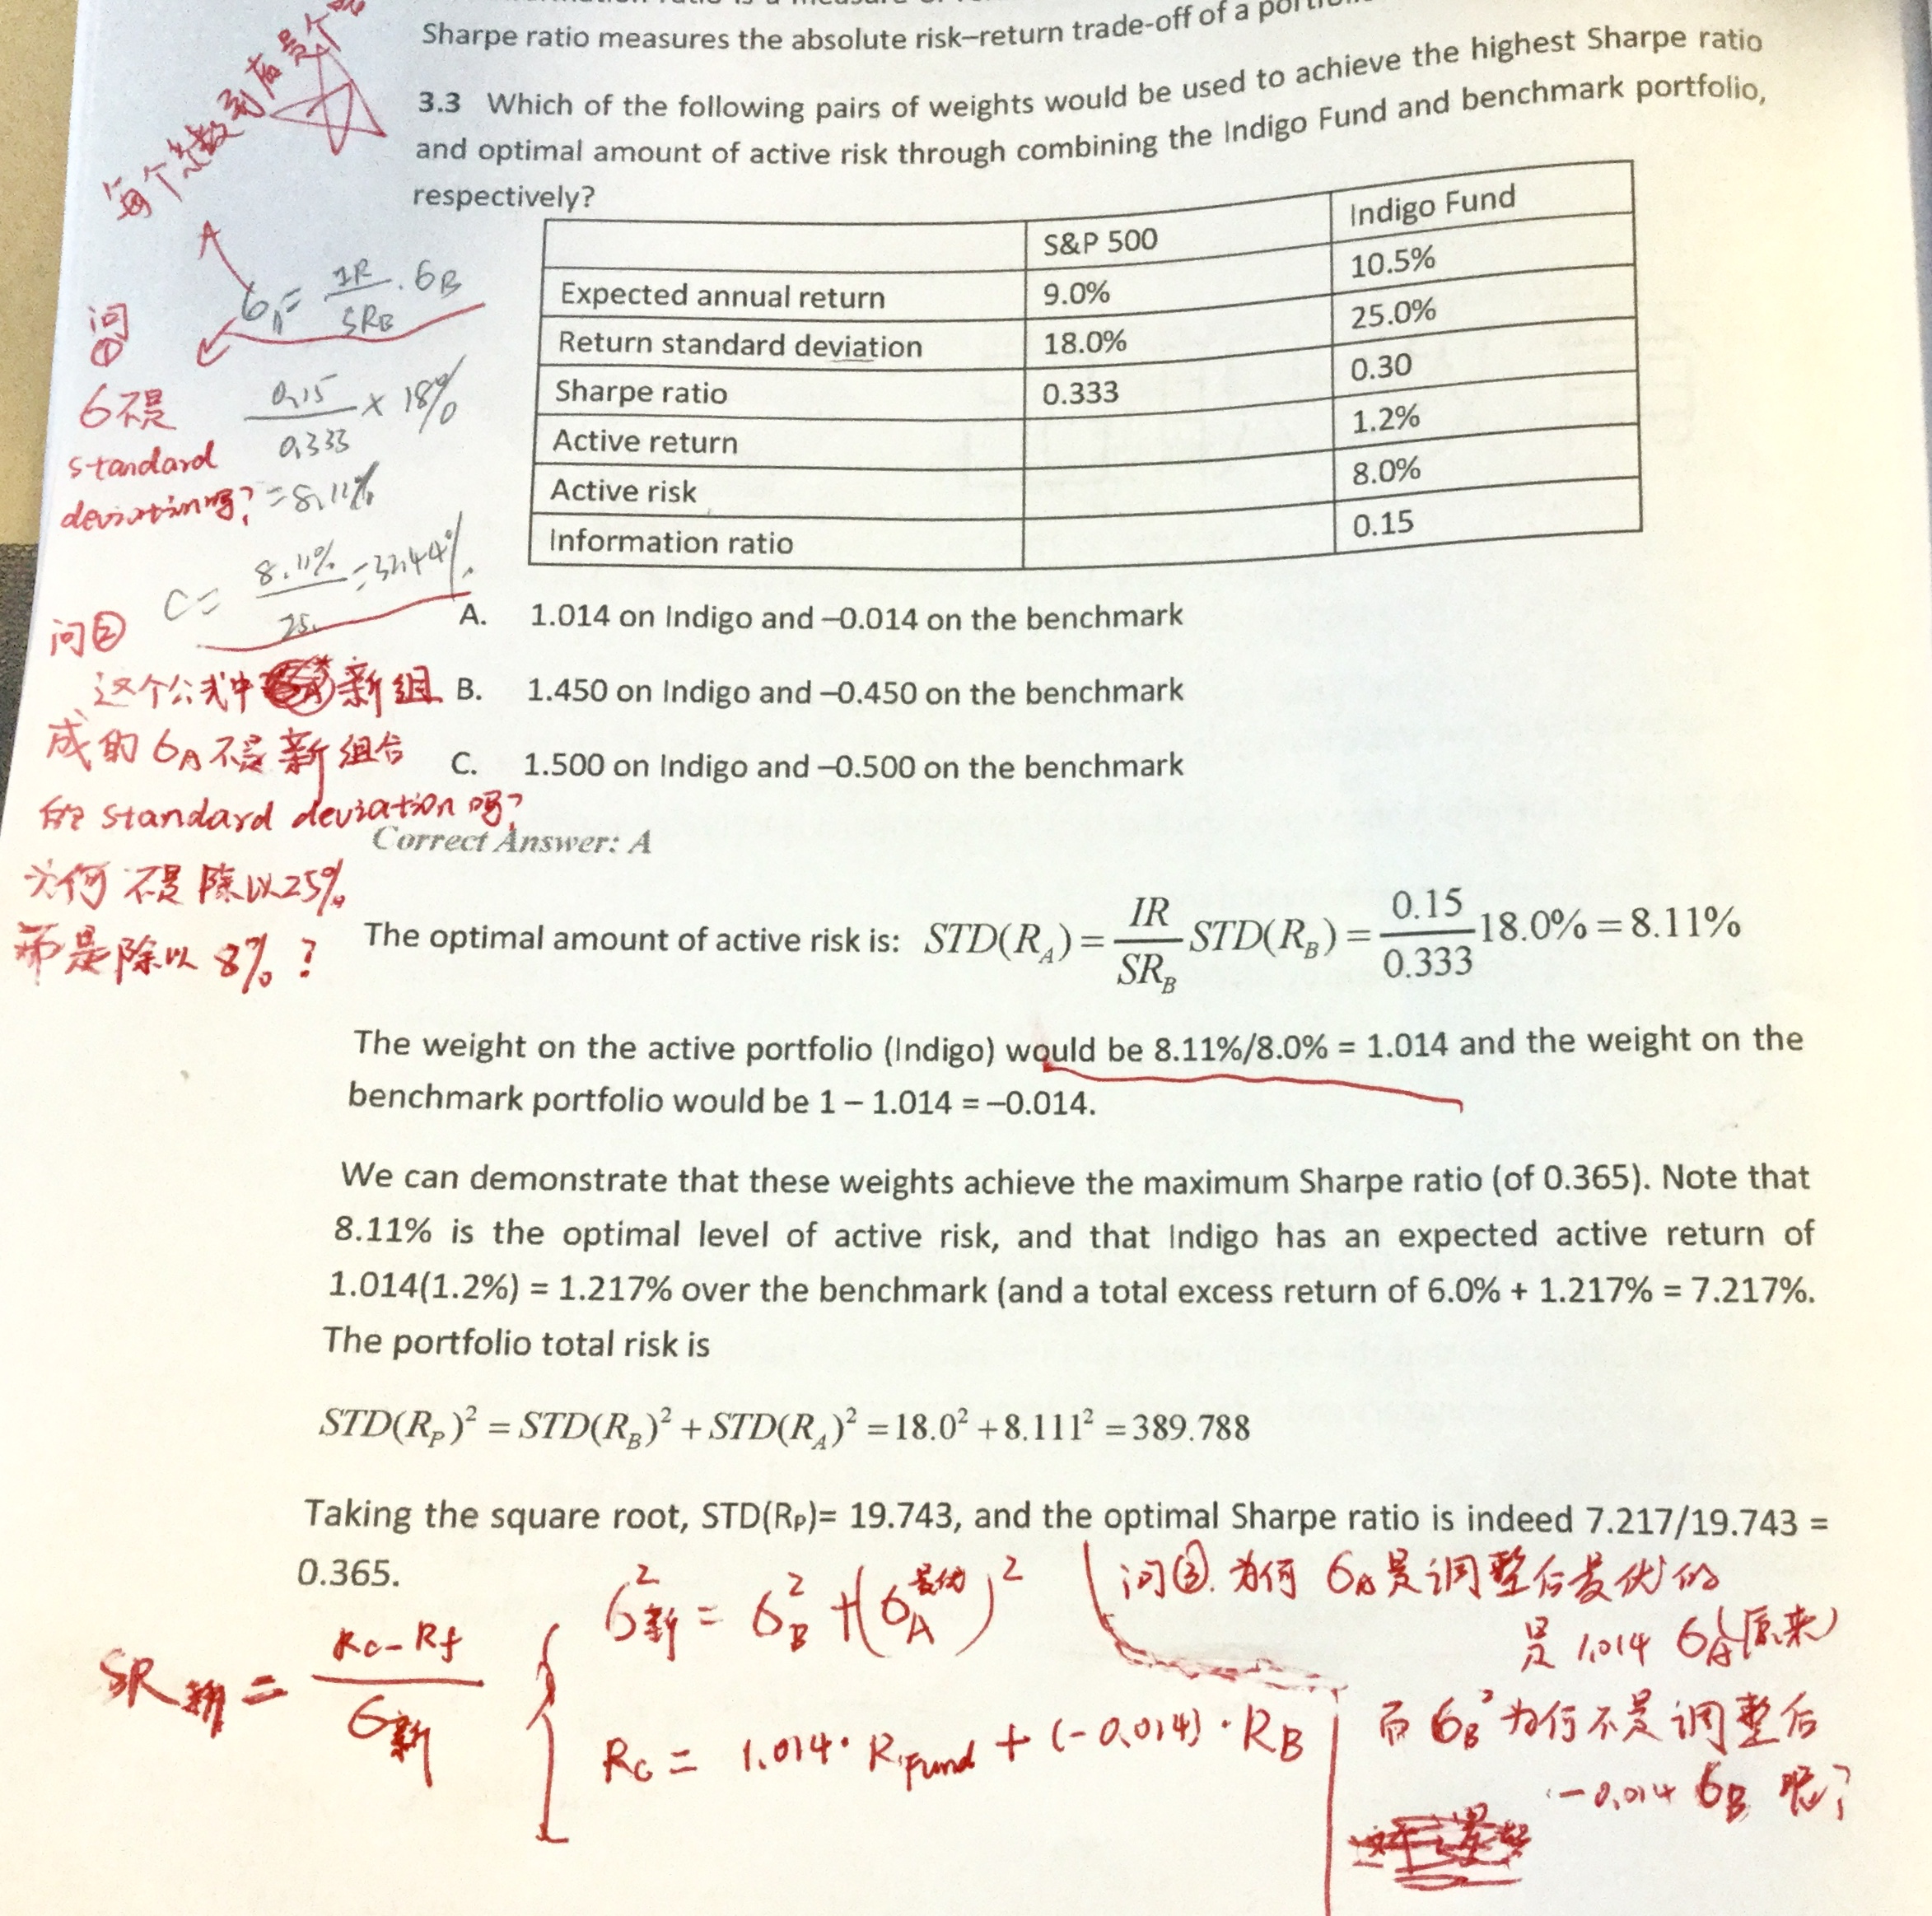 Sharpe ratio measures the absolute risk–return trade-off of a
3.3 Which of the following pairs of weights would be used to achieve the highest Sharpe ratio
and optimal amount of active risk through combining the Indigo Fund and benchmark portfolio,
respectively?
S&P 500 Indigo Fund
Expected annual return 9.0% 10.5%
Return standard deviation 18.0% 25.0%
Sharpe ratio 0.333 0.30
Active return 1.2%
Active risk 8.0%
Information ratio 0.15
A. 1.014 on Indigo and –0.014 on the benchmark
B. 1.450 on Indigo and –0.450 on the benchmark
C. 1.500 on Indigo and –0.500 on the benchmark
Correct Answer: A
The optimal amount of active risk is: STD(R_A) = IR/SR_B STD(R_B) = 0.15/0.333 18.0% = 8.11%
The weight on the active portfolio (Indigo) would be 8.11%/8.0% = 1.014 and the weight on the
benchmark portfolio would be 1 – 1.014 = –0.014.
We can demonstrate that these weights achieve the maximum Sharpe ratio (of 0.365). Note that
8.11% is the optimal level of active risk, and that Indigo has an expected active return of
1.014(1.2%) = 1.217% over the benchmark (and a total excess return of 6.0% + 1.217% = 7.217%.
The portfolio total risk is
STD(R_P)² = STD(R_B)² + STD(R_A)² = 18.0² + 8.111² = 389.788
Taking the square root, STD(R_P)= 19.743, and the optimal Sharpe ratio is indeed 7.217/19.743 =
0.365.
每个
A
σ_A = IR/SR_B · σ_B
问①
σ不是
standard
deviation吗?
0.15/0.333 × 18%
=8.11%
C= 8.11%/25. =32.44%
问②
这个公式中新组
成的σ_A不是新组合
的 standard deviation吗?
为何不是除以25%
而是除以8%?
SR新 = (Rc-Rf)/σ新
σ²新 = σ²_B + (σ_A最优)²
Rc = 1.014·R_Fund + (-0.014)·R_B
问③.为何σ_A是调整后最优的
是1.014 σ_A(原来)
而σ_B²为何不是调整后
-0.014 σ_B 呢?